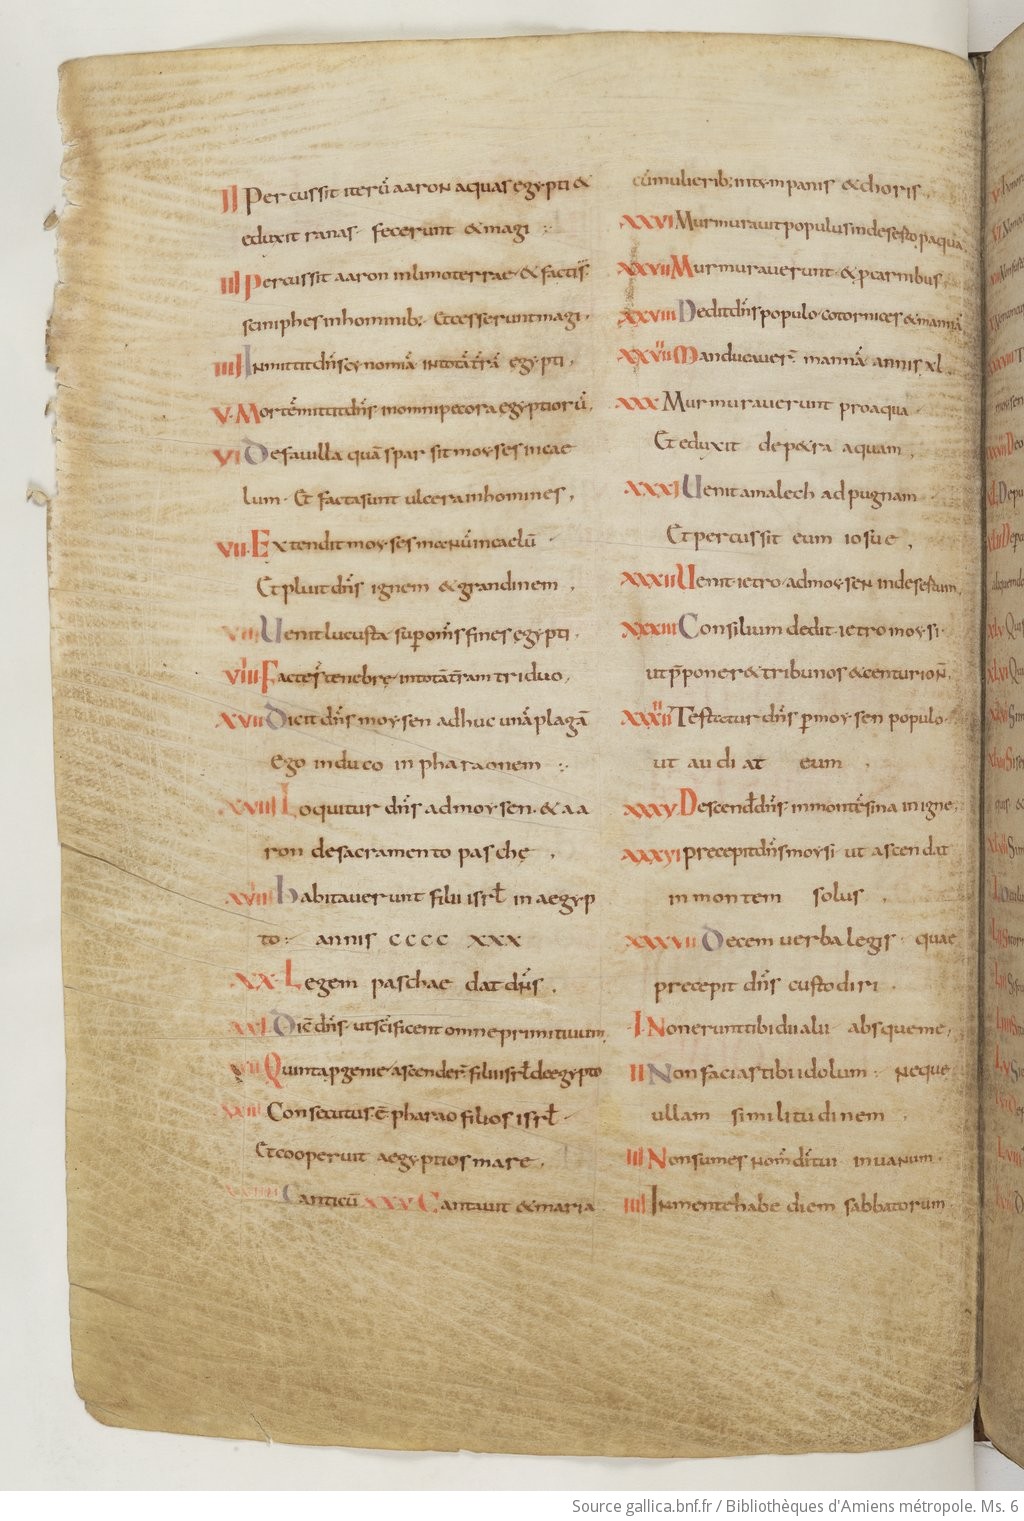 II Percussit iterū aaron aquas egypti &
eduxit ranas· fecerunt & magi :·
III Percussit aaron in limo terrae & factis
sciniphes in hominib; Et cesserunt magi·
IIII Inmittit dn̄s cynomiā in totā t̄rā egypti·
V· Mortē mittit dn̄s in omni pecora egyptiorū·
VI De favilla quā sparsit moyses in cae
lum· Et facta sunt ulcera in homines,
VII· Extendit moyses manū in caelū ·
Et pluit dn̄s ignem & grandinem,
VIII Uenit lucusta sup om̄s fines egypti·
VIIII Facte s̄ tenebrę in totā t̄ram triduo,
XVII Dicit dn̄s moysen adhuc unā plagā
Ego induco in pharaonem :·
XVIII Loquitur dn̄s ad moysen· & aa
ron de sacramento paschę ,
XVIIII habitaverunt filii isrl̄ in aegyp
to: annis CCCC XXX
XX· Legem paschae dat dn̄s ,
XXI· Dic̄ dn̄s ut sc̄ificent omne primitiuum,
XXII Quinta p genie ascender̄ filii isrl̄ de egypto
XXIII Consecutus ē pharao filios isrl̄·
Et cooperuit aegyptios mare,
XXIIII Canticū XXV Cantavit & maria
cū mulierib; in tympanis & choris,
XXVI Murmuravit populus in deserto p aqua,
XXVII Murmuraverunt & p carnibus,
XXVIII Dedit dn̄s populo coturnices & mannā,
XXVIIII Manducaver̄ mannā annis xl
XXX Murmuraverunt pro aqua
Et eduxit de p&ra aquam,
XXXI Uenit amalech ad pugnam
Et percussit eum iosue,
XXXII Uenit ietro ad moysen in desertum,
XXXIII Consilium dedit ietro moysi·
ut p̄poner& tribunos & centurion̄,
XXXIIII Testatur dn̄s p moysen populo
ut audiat eum ,
XXXV Descend̄ dn̄s in monte sina in igne,
XXXVI precepit dn̄s moysi ut ascendat
in montem solus ,
XXXVII Decem uerba legis· quae
precepit dn̄s custodiri ·
I· Non erunt tibi dii alii absque me,
II Non facias tibi idolum : neque
ullam similitudinem ,
III Non sumes nom̄ dī tui in uanum·
IIII In mente habe diem sabbatorum·
Source gallica.bnf.fr / Bibliothèques d'Amiens métropole. Ms. 6